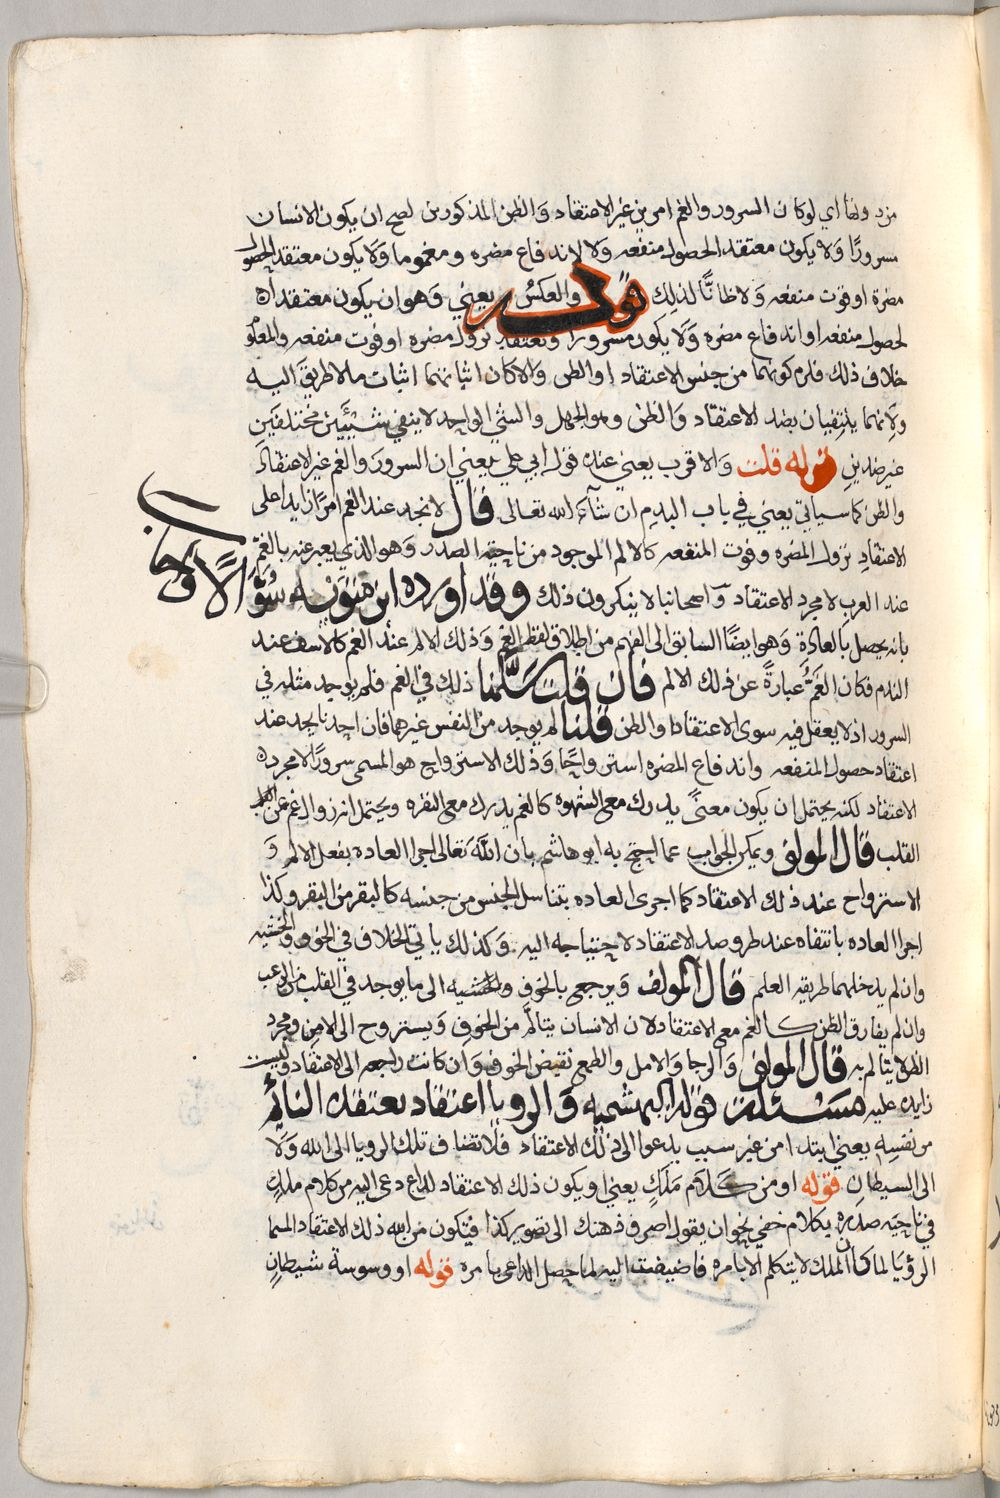 مزد ولها اي لوكان السرور والغم امرين غير الاعتقاد والظن المذكورين لصح ان يكون الانسان
مسرورًا وَلا يكون معتقد الحصول منفعه ولا لاندفاع مضره ومغموما وَلا يكون معتقد الحصول
مضرة اوفوت منفعه وَلا ظانًّا لذلك قوله والعكس يعني وَهو ان يكون معتقدا
لحصول منفعه او اندفاع مضره وَلَا يكون مسرورا ويعتقد نزول مضره اوفوت منفعه والمعلوم
خلاف ذلك فلزم كونهما من جنس الاعتقاد اوالظن وَالا كان اثباتهما اثبات ما لاطريق اليه
ولانهما ينتفيان بضد الاعتقاد وَالظن وهو الجهل والشئ الواحد لاينفي شيئَين مختلفَين
غير ضدينِ قوله قلت وَالاقرب يعني عنده قول ابي علي يعني ان السرورَ والغم غير الاعتقادَ
والظن كما سياتي يعني في باب البدم ان شآء الله تعالى قال لانجد عند الغم امرًا زايدا على
الاعتقادِ نزول المضره وفوت المنفعه كالالم الموجود من ناحيه الصدر وَهو الذي يعبر عنه بالغمِّ
عند العرب لا مجرد الاعتقاد وَاصحابنا لا ينكرون ذلك وقد اورده ابن متويه سؤالًا واجاب
بانه يحصل بالعادة وَهو ايضًا السابق الى الفهم من اطلاق لفظ الغم وَذلك الالم عند الغم كالاسف عند
الندم فكان الغَمُّ عبارةً عن ذلك الالم فان قلت سلَّمنا ذلك في الغم فلم يوجد مثله في
السرور اذ لا يعقل فيه سوى الاعتقاد او الظن قلنا لم يوجد من النفس غيرهما فان احدنا يجد عند
اعتقاد حصول المنفعه واندفاع المضره استرواحًا وَذلك الاسترواح هو المسمى سرورًا لا مجرد
الاعتقاد لكنه يحتمل ان يكون معنىً يدرك معه الشهوه كالغم يدرك معه النفره ويحتمل انه زوال غم عن
القلب قال المولف ويمكن الجواب عما احتج به ابو هاشم بان اللّه تعالى اجرا العاده بفعل الالم وَ
الاسترواح عند ذلك الاعتقاد كما اجرى العاده بتناسل الجنس من جنسه كالبقر من البقر وكذا
اجرا العاده بانتفاه عند طرو ضد الاعتقاد لاحتياجه اليه وَكذلك ياتي الخلاف في الخوف والخشيه
وان لم يدخلهما طريقه العلم قال المولف وَيرجع بالخوف والخشيه الى ما يوجد في القلب من الرعب
وان لم يفارق الظن كالغم مع الاعتقاد لان الانسان يتالَّم من الخوف وَيستروح الى الامن ومجرد
الظن لا يتالم به قال المولف وَالرجا وَالامل والطمع نقيض الخوف وَان كانت راجعه الى الاعتقاد وليست
زايده عليه مسئلة قوله البهشميه وَالرويا اعتقاد يعتقده النائم
من نفسه يعني ابتدا من غير سبب يدعوا الى ذلك الاعتقاد فلا تضاف تلك الرويا الى الله وَلَا
الى السيطان قوله او من كلام مَلَكٍ يعني او يكون ذلك الاعتقاد لداع دعى اليه من كلام ملكٍ
في ناحيَه صدره بكلام خفي نحو ان يقول اصرف ذهنك الى تصوير كذا فتكون من الله ذلك الاعتقاد المسما
الرؤيَا لما كان الملك لايتكلم الا بامره فاضيفت اليه لما حصل الداعي بامره قوله او وسوسة شيطانٍ